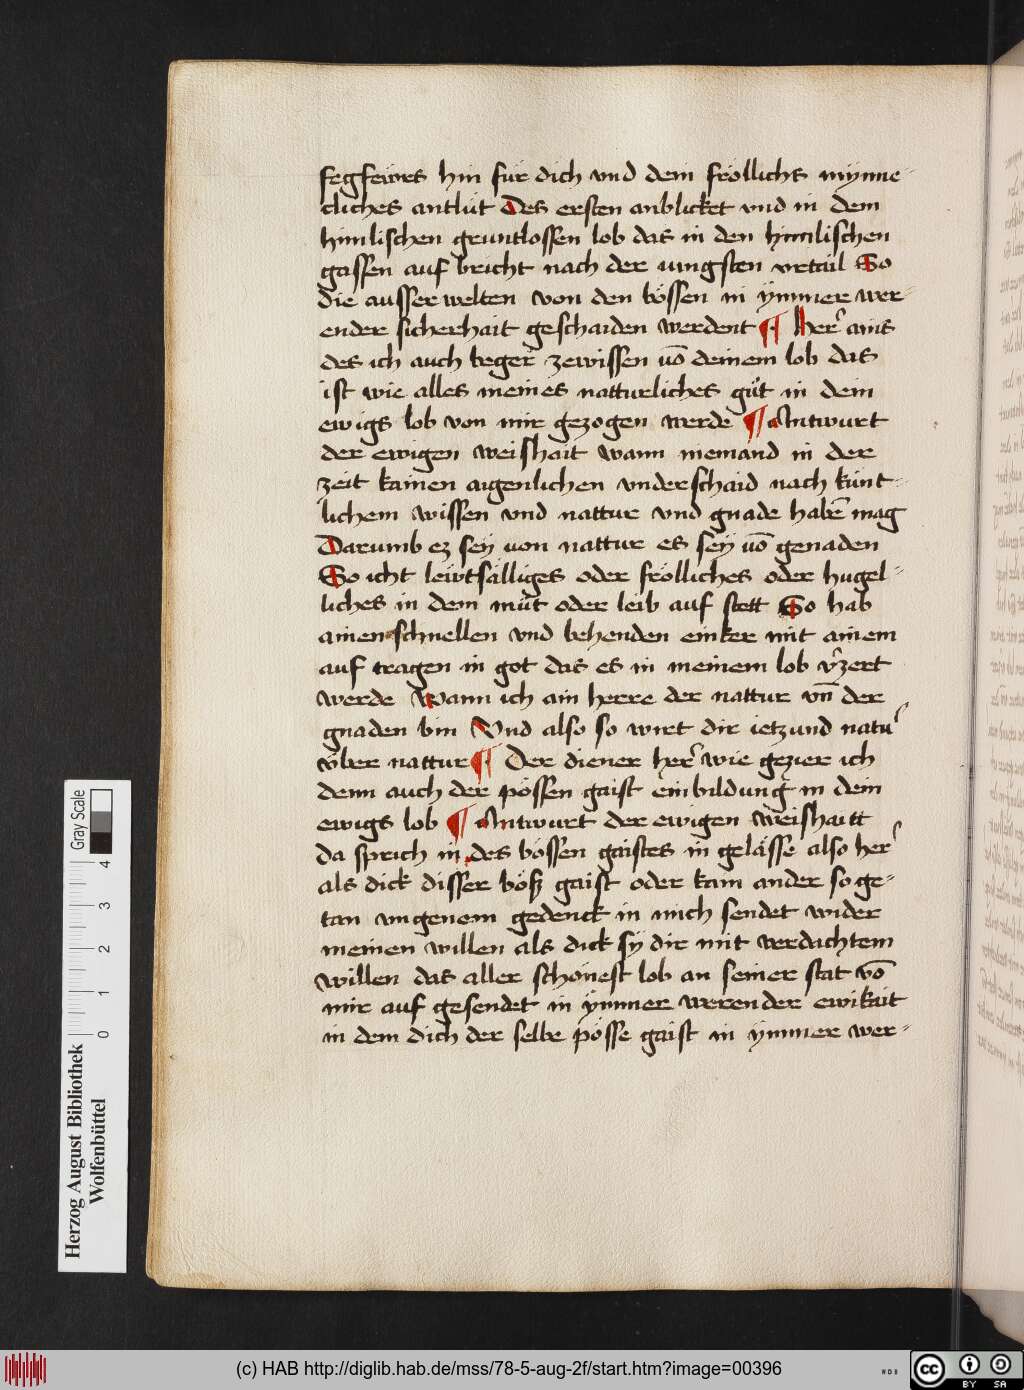 fegfeẅrs hin für dich vnd dein fröllichs mynne-
cliches antlüt Des ersten anblicket vnd in dem
himlischen gruntlossen lob das in den himilischen
gassen auf bricht nach der iungsten vrtail So
die ausserwelten von den bössen in ÿmmer wer-
ender sicherhait geschaiden werdent ¶ Her̄ ains
des ich auch beger̄ zewissen vō deinem lob das
ist wie alles meines natturliches güt in dein
ewigs lob von mir gezogen werde ¶ Antwurt
der ewigen weishait wann niemand in der
zeit kainen aigenlichen vnderschaid nach künt-
lichem wissen vnd nattur vnd gnade habē mag
Darumb ez sey von nattur es sey vō genaden
So icht leẅtsälliges oder frölliches oder hugel-
liches in dem müt oder leib auf stett So hab
ainen schnellen vnd behenden einker mit ainem
auf tragen in got das es in meinem lob v̄zert
werde Wann ich ain herre der nattur vn̄ der
gnaden bin Vnd also so wirt dir ietzund natur̄
v̈ber nattur ¶ Der diener her̄ wie gezier ich
denn auch der pössen gaist einbildung in dein
ewigs lob ¶ Antwurt der ewigen weishaitt
da sprich in des bössen gaistes in gelässe also her̄
als dick disser böß gaist oder kain ander so ge-
tan vngenem gedenck in mich sendet wider
meinen willen als dick sÿ dir mit verdachtem
willen das aller schönest lob an seiner stat vō
mir auf gesendet in ÿmmer werender ewikait
in dem dich der selbe pösse gaist in ÿmmer wer-
Gray Scale
0 1 2 3 4
Herzog August Bibliothek
Wolfenbüttel
(c) HAB http://diglib.hab.de/mss/78-5-aug-2f/start.htm?image=00396
WDB
cc BY SA